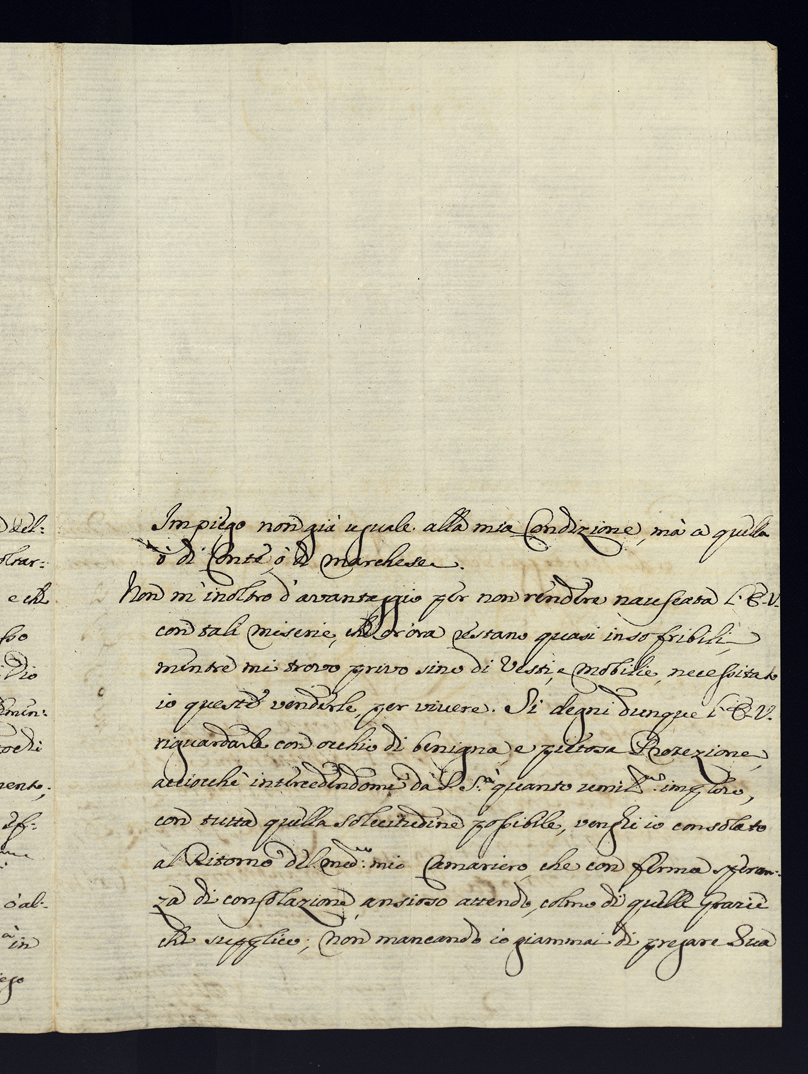 Del:
oltrar:
e che
Dio
ochi
mento;
ò al:
in
Impiego non già uguale alla mia Condizione, mà a quella
ò di Conte, ò di Marchese.
Non m'inoltro d'avvantaggio per non rendere nauseata l'E.V.
con tali miserie, che or'ora restano quasi insofribili,
mentre mi trovo privo sino di Vesti, e Mobilie, necessitato
io queste venderle, per vivere. Si degni dunque l'E.V.
riguardarle con occhio di benigna, e pietosa Protezione,
acciochè intercedendomi da S. S.tà quanto umil.te imploro,
con tutta quella solecitudine possibile, venghi io consolato
al Ritorno del med.mo mio Camariero, che con ferma speran:
za di consolazione, ansioso attendo, colmo di quelle grazie
che supplico; non mancando io giammai di pregare Sua